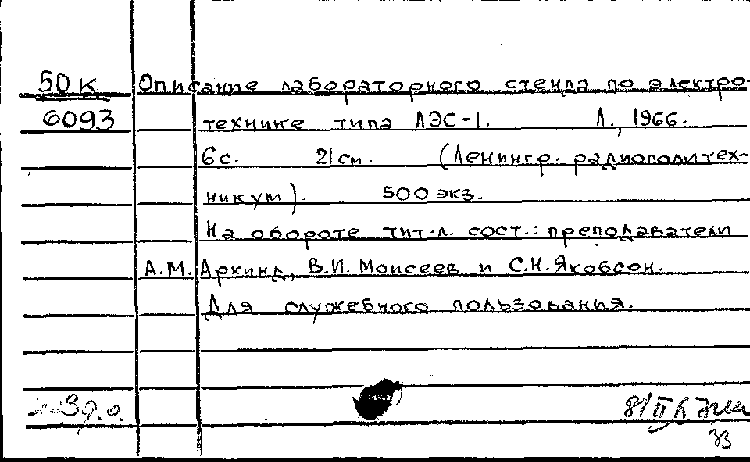 50к Описание лабораторного стенда по электро-
6093 технике типа ЛЭС-1. Л., 1966.
6с. 21см. (Ленингр. радиополитех-
никум). 500 экз.
На обороте тит.л. сост.: преподаватели
А.М. Архинд, В.И. Моисеев и С.Н. Якобсон.
Для служебного пользования.
33